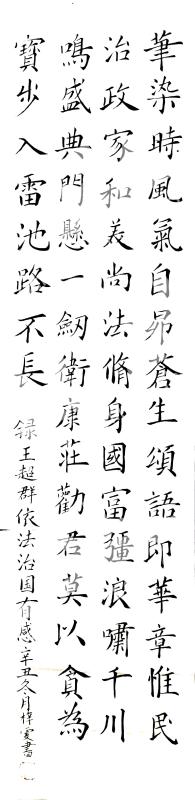 筆染時風氣自昂蒼生頌語即華章惟民
治政家和美尚法脩身國富彊浪嘯千川
鳴盛典門懸一劒衛康莊勸君莫以貪為
寶步入雷池路不長
録王超群依法治国有感辛丑冬月偉雯書